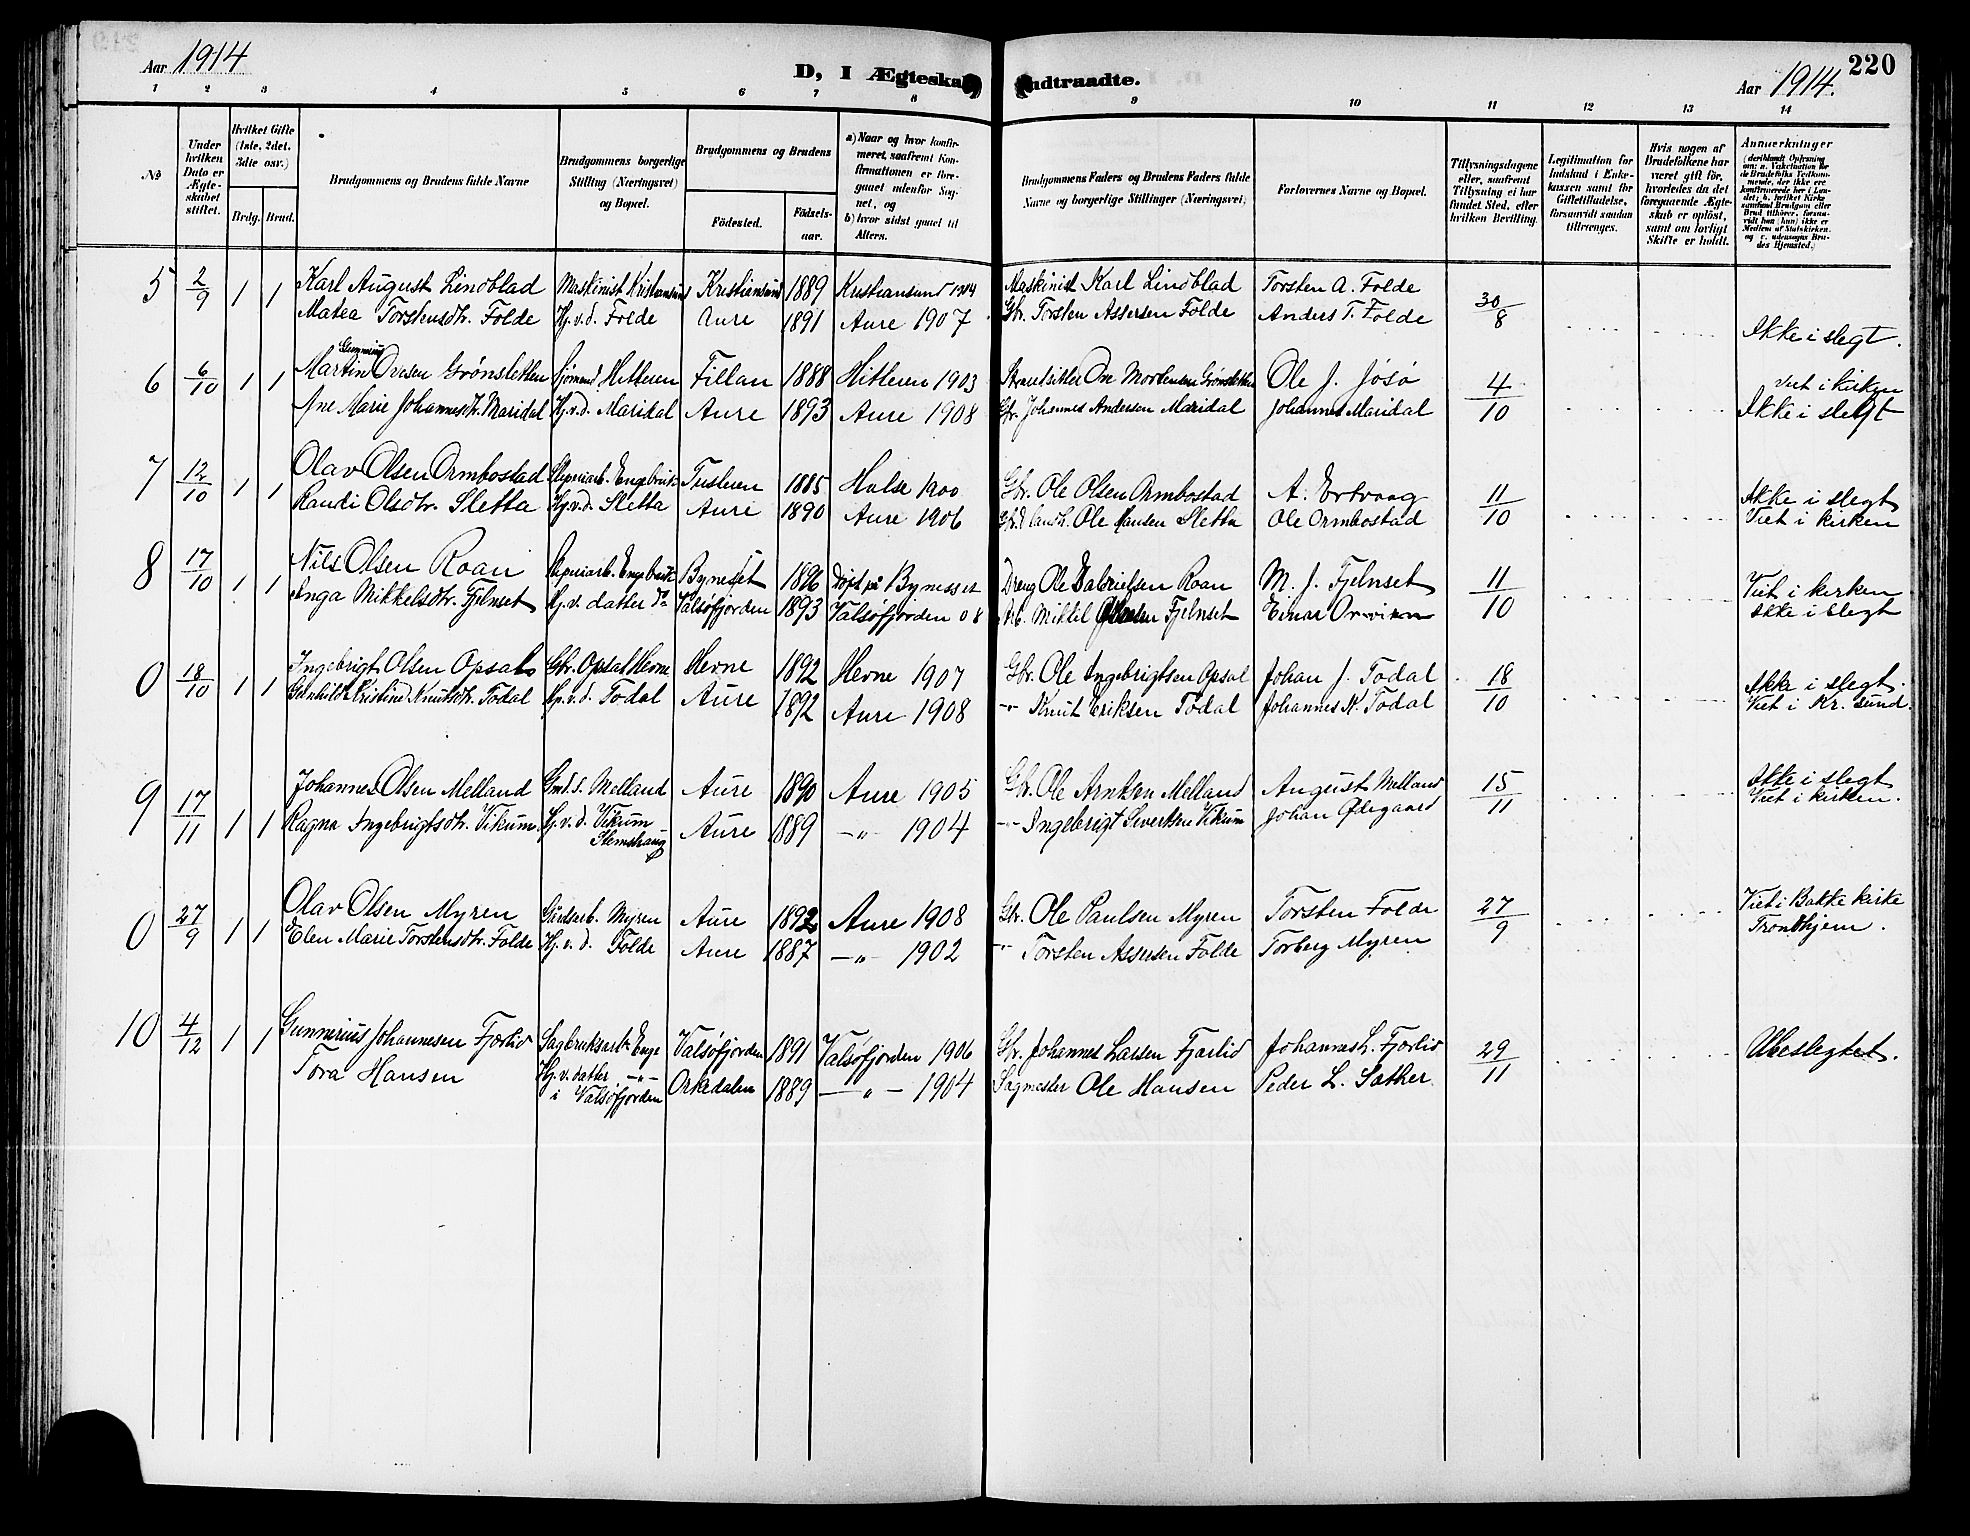 Aar 1914
D, I Ægteska
ndtraadte.
Aar 1914.
220
1 2 3 4 5 6 7 8 9 10 11 12 13 14
No
Under hvilken Dato er Ægteskabet stiftet.
Hvilket Gifte (1ste, 2det, 3die osv.)
Brdg. Brud.
Brudgommens og Brudens fulde Navne
Brudgommens borgerlige Stilling (Næringsvei) og Bopæl.
Brudgommens og Brudens
Fødested.
Fødselsaar.
a) Naar og hvor konfirmeret, saafremt Konfirmationen er foregaaet udenfor Sognet, og
b) hvor sidst gaaet til Alters.
Brudgommens Faders og Brudens Faders fulde Navne og borgerlige Stillinger (Næringsvei)
Forlovernes Navne og Bopæl.
Tillysningsdagene eller, saafremt Tillysning ei har fundet Sted, efter hvilken Bevilling.
Legitimation for Indskud i Enkekassen samt for Giftetilladelse, forsaavidt saadan tiltrænges.
Hvis nogen af Brudefolkene har været gift før, hvorledes da det foregaaende Ægteskab er opløst, samt om lovligt Skifte er holdt.
Anmerkninger
5 2/9 1 1 Karl August Lindblad Maskinist Kristiansund Kristiansund 1889 Kristiansund 1904 Maskinist Karl Lindblad Torsten A. Folde 30/8
Matea Torstensdtr. Folde Hj.v.d. Folde Aure 1891 Aure 1907 Gbr. Torsten Assersen Folde Anders T. Folde Ikke i slegt.
6 6/10 1 1 Martin Gunnerius Ovesen Grønsletten Sjømand Hitteren Fillan 1888 Hitteren 1903 Strandsitter One Mortensen Grønsletten Ole J. Jøsø 4/10 Viet i kirken
Ane Marie Johannesdtr. Maridal Hj.v.d. Maridal Aure 1893 Aure 1908 Gbr. Johannes Andersen Maridal Johannes Maridal Ikke i slegt
7 12/10 1 1 Olav Olsen Ormbostad Sliperiarb. Engebruk Tusteren 1885 Halse 1900 Gbr. Ole Olsen Ormbostad A. Ertvaag 11/10 Ikke i slegt
Randi Olsdtr. Sletta Hj.v.d. Sletta Aure 1890 Aure 1906 Ole Hansen Sletta Ole Ormbostad Viet i kirken
8 17/10 1 1 Nils Olsen Roan Sliperiarb. Engebruk Byneset 1896 døpt på Bynesset Dreng Ole Gabrielsen Roan M. J. Fjelnset 11/10 Viet i kirken
Inga Mikkelsdtr. Fjelnset Hj.v. datter do Valsøfjorden 1893 Valsøfjorden 08 Mikkel Fjelnset Einar Orvikn Ikke i slegt
0 18/10 1 1 Ingebrigt Olsen Opsal Gbr. Opsal Hevne Hevne 1892 Hevne 1907 Gbr. Ole Ingebrigtsen Opsal Johan J. Todal 18/10 Ikke i slegt.
Gunhild Kristine Knutsdtr. Todal Hj.v.d. Todal Aure 1892 Aure 1908 -"- Knut Eriksen Todal Johannes K. Todal Viet i Kr. sund.
9 17/11 1 1 Johannes Olsen Melland Gmd.s. Melland Aure 1890 Aure 1905 Gbr. Ole Arntsen Melland August Melland 15/11 Ikke i slegt
Ragna Ingebrigtsdtr. Vikum Hj.v.d. Vikum Stemshaug Aure 1889 -"- 1904 -"- Ingebrigt Sivertsen Vikum Johan Ødegaard Viet i kirken.
0 27/9 1 1 Olav Olsen Myren Gårdsarb. Myren Aure 1892 Aure 1908 Gbr. Ole Paulsen Myren Torsten Folde 27/9 Viet i Bakke kirke
Elen Marie Torstensdtr. Folde Hj.v.d. Folde Aure 1887 -"- 1902 " Torsten Assersen Folde Torberg Myren Trondhjem.
10 4/12 1 1 Gunnerius Johannesen Fjærlid Sagbruksarb. Enge Valsøfjorden 1891 Valsøfjorden 1906 Gbr. Johannes Larsen Fjærlid Johannes L. Fjærlid 29/11 Ubeslegtet.
Tora Hansen Hj.v. datter -"- i Valsøfjorden Orkedalen 1889 -"- 1904 Sagmester Ole Hansen Peder L. Sæther